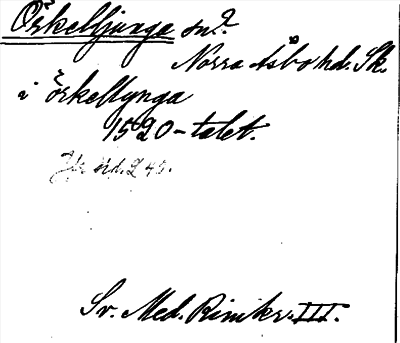 Örkelljunga sn?
Norra Åsbo hd. Sk.
i örkellynga
1520-talet.
hd. 2 45.
Sv. Med. Rimkr. III.